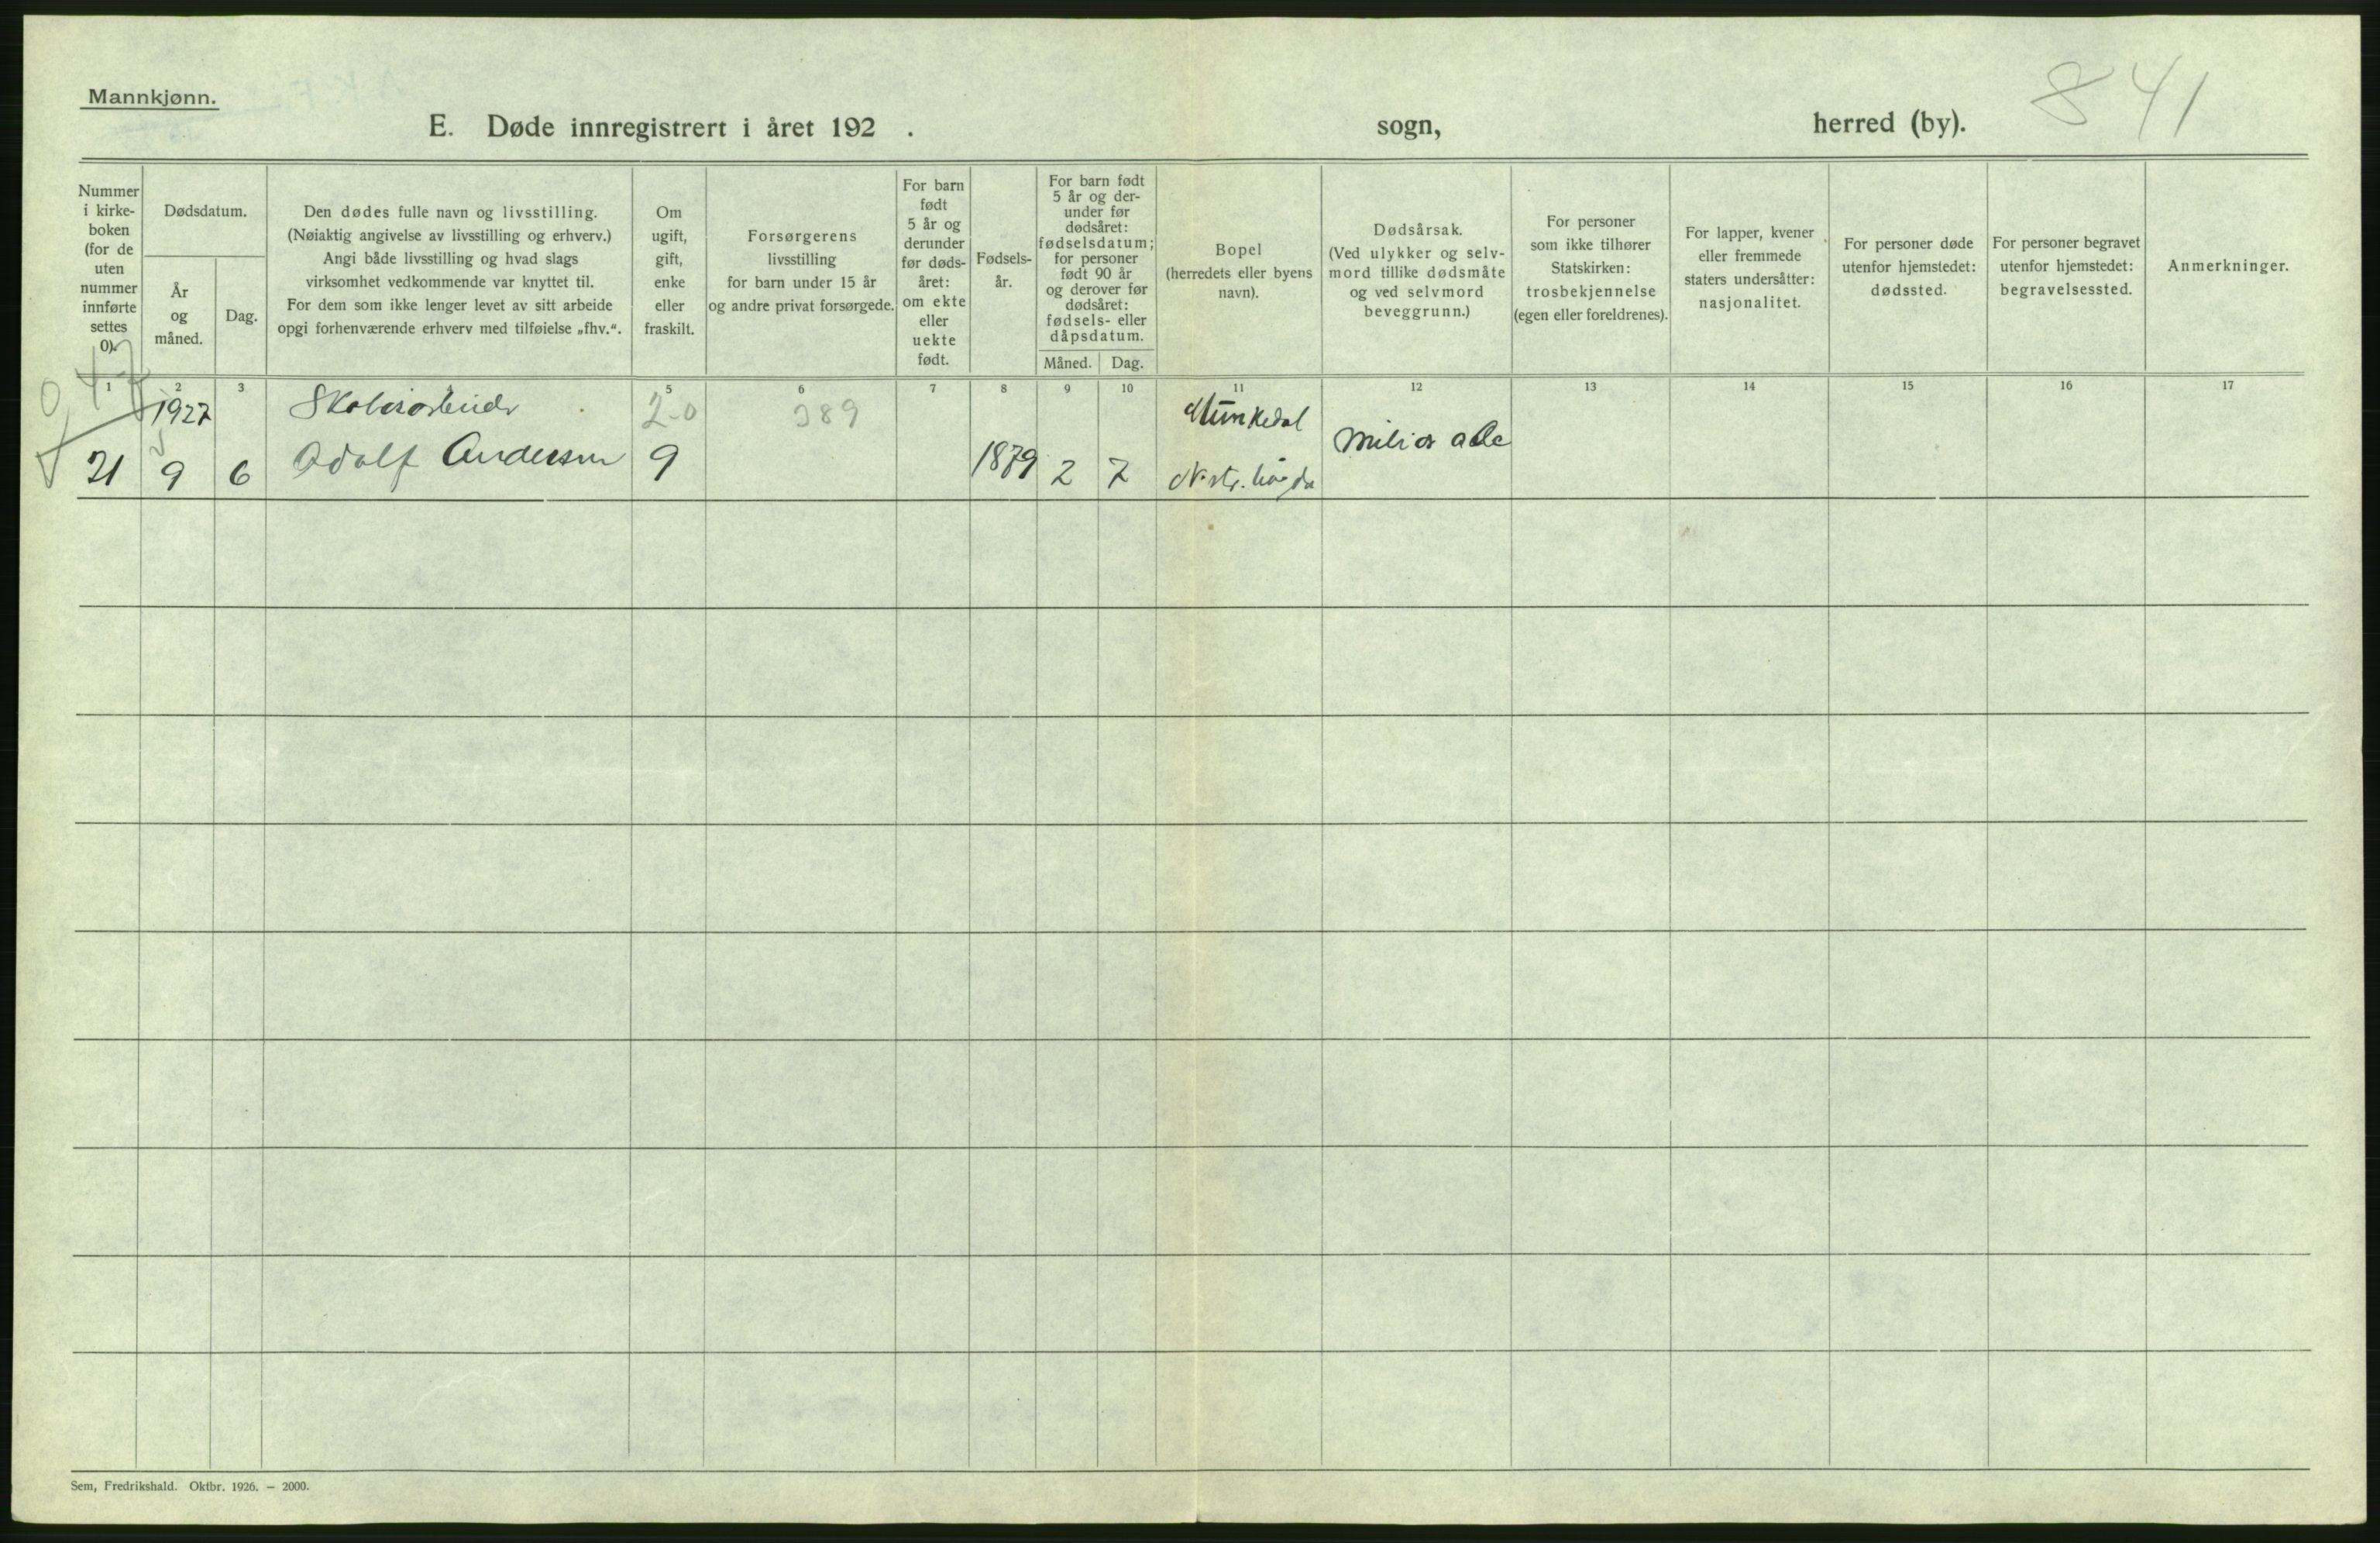 Mannkjønn.
841
E. Døde innregistrert i året 192 . sogn, herred (by).
Nummer
i kirke-
boken
(for de
uten
nummer
innførte
settes
0).
Dødsdatum.
År
og
måned.
Dag.
Den dødes fulle navn og livsstilling.
(Nøiaktig angivelse av livsstilling og erhverv.)
Angi både livsstilling og hvad slags
virksomhet vedkommende var knyttet til.
For dem som ikke lenger levet av sitt arbeide
opgi forhenværende erhverv med tilføielse „fhv.“.
Om
ugift,
gift,
enke
eller
fraskilt.
Forsørgerens
livsstilling
for barn under 15 år
og andre privat forsørgede.
For barn
født
5 år og
derunder
før døds-
året:
om ekte
eller
uekte
født.
Fødsels-
år.
For barn født
5 år og der-
under før
dødsåret:
fødselsdatum;
for personer
født 90 år
og derover før
dødsåret:
fødsels- eller
dåpsdatum.
Måned. Dag.
Bopel
(herredets eller byens
navn).
Dødsårsak.
(Ved ulykker og selv-
mord tillike dødsmåte
og ved selvmord
beveggrunn.)
For personer
som ikke tilhører
Statskirken:
trosbekjennelse
(egen eller foreldrenes).
For lapper, kvener
eller fremmede
staters undersåtter:
nasjonalitet.
For personer døde
utenfor hjemstedet:
dødssted.
For personer begravet
utenfor hjemstedet:
begravelsessted.
Anmerkninger.
1 2 3 5 6 7 8 9 10 11 12 13 14 15 16 17
1927 2-0 389 Munkedal
21 9 6 Adolf Andersen 9 1879 2 7
Sem, Fredrikshald. Oktbr. 1926. — 2000.